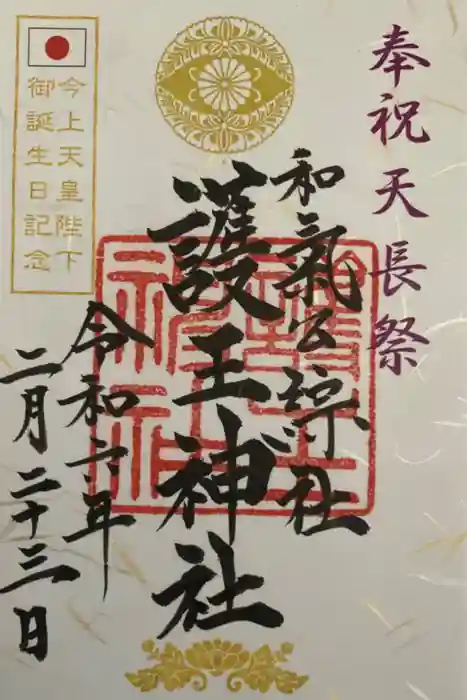 奉祝天長祭
和氣公綜社
護王神社
令和六年
二月二十三日
今上天皇陛下
御誕生日記念